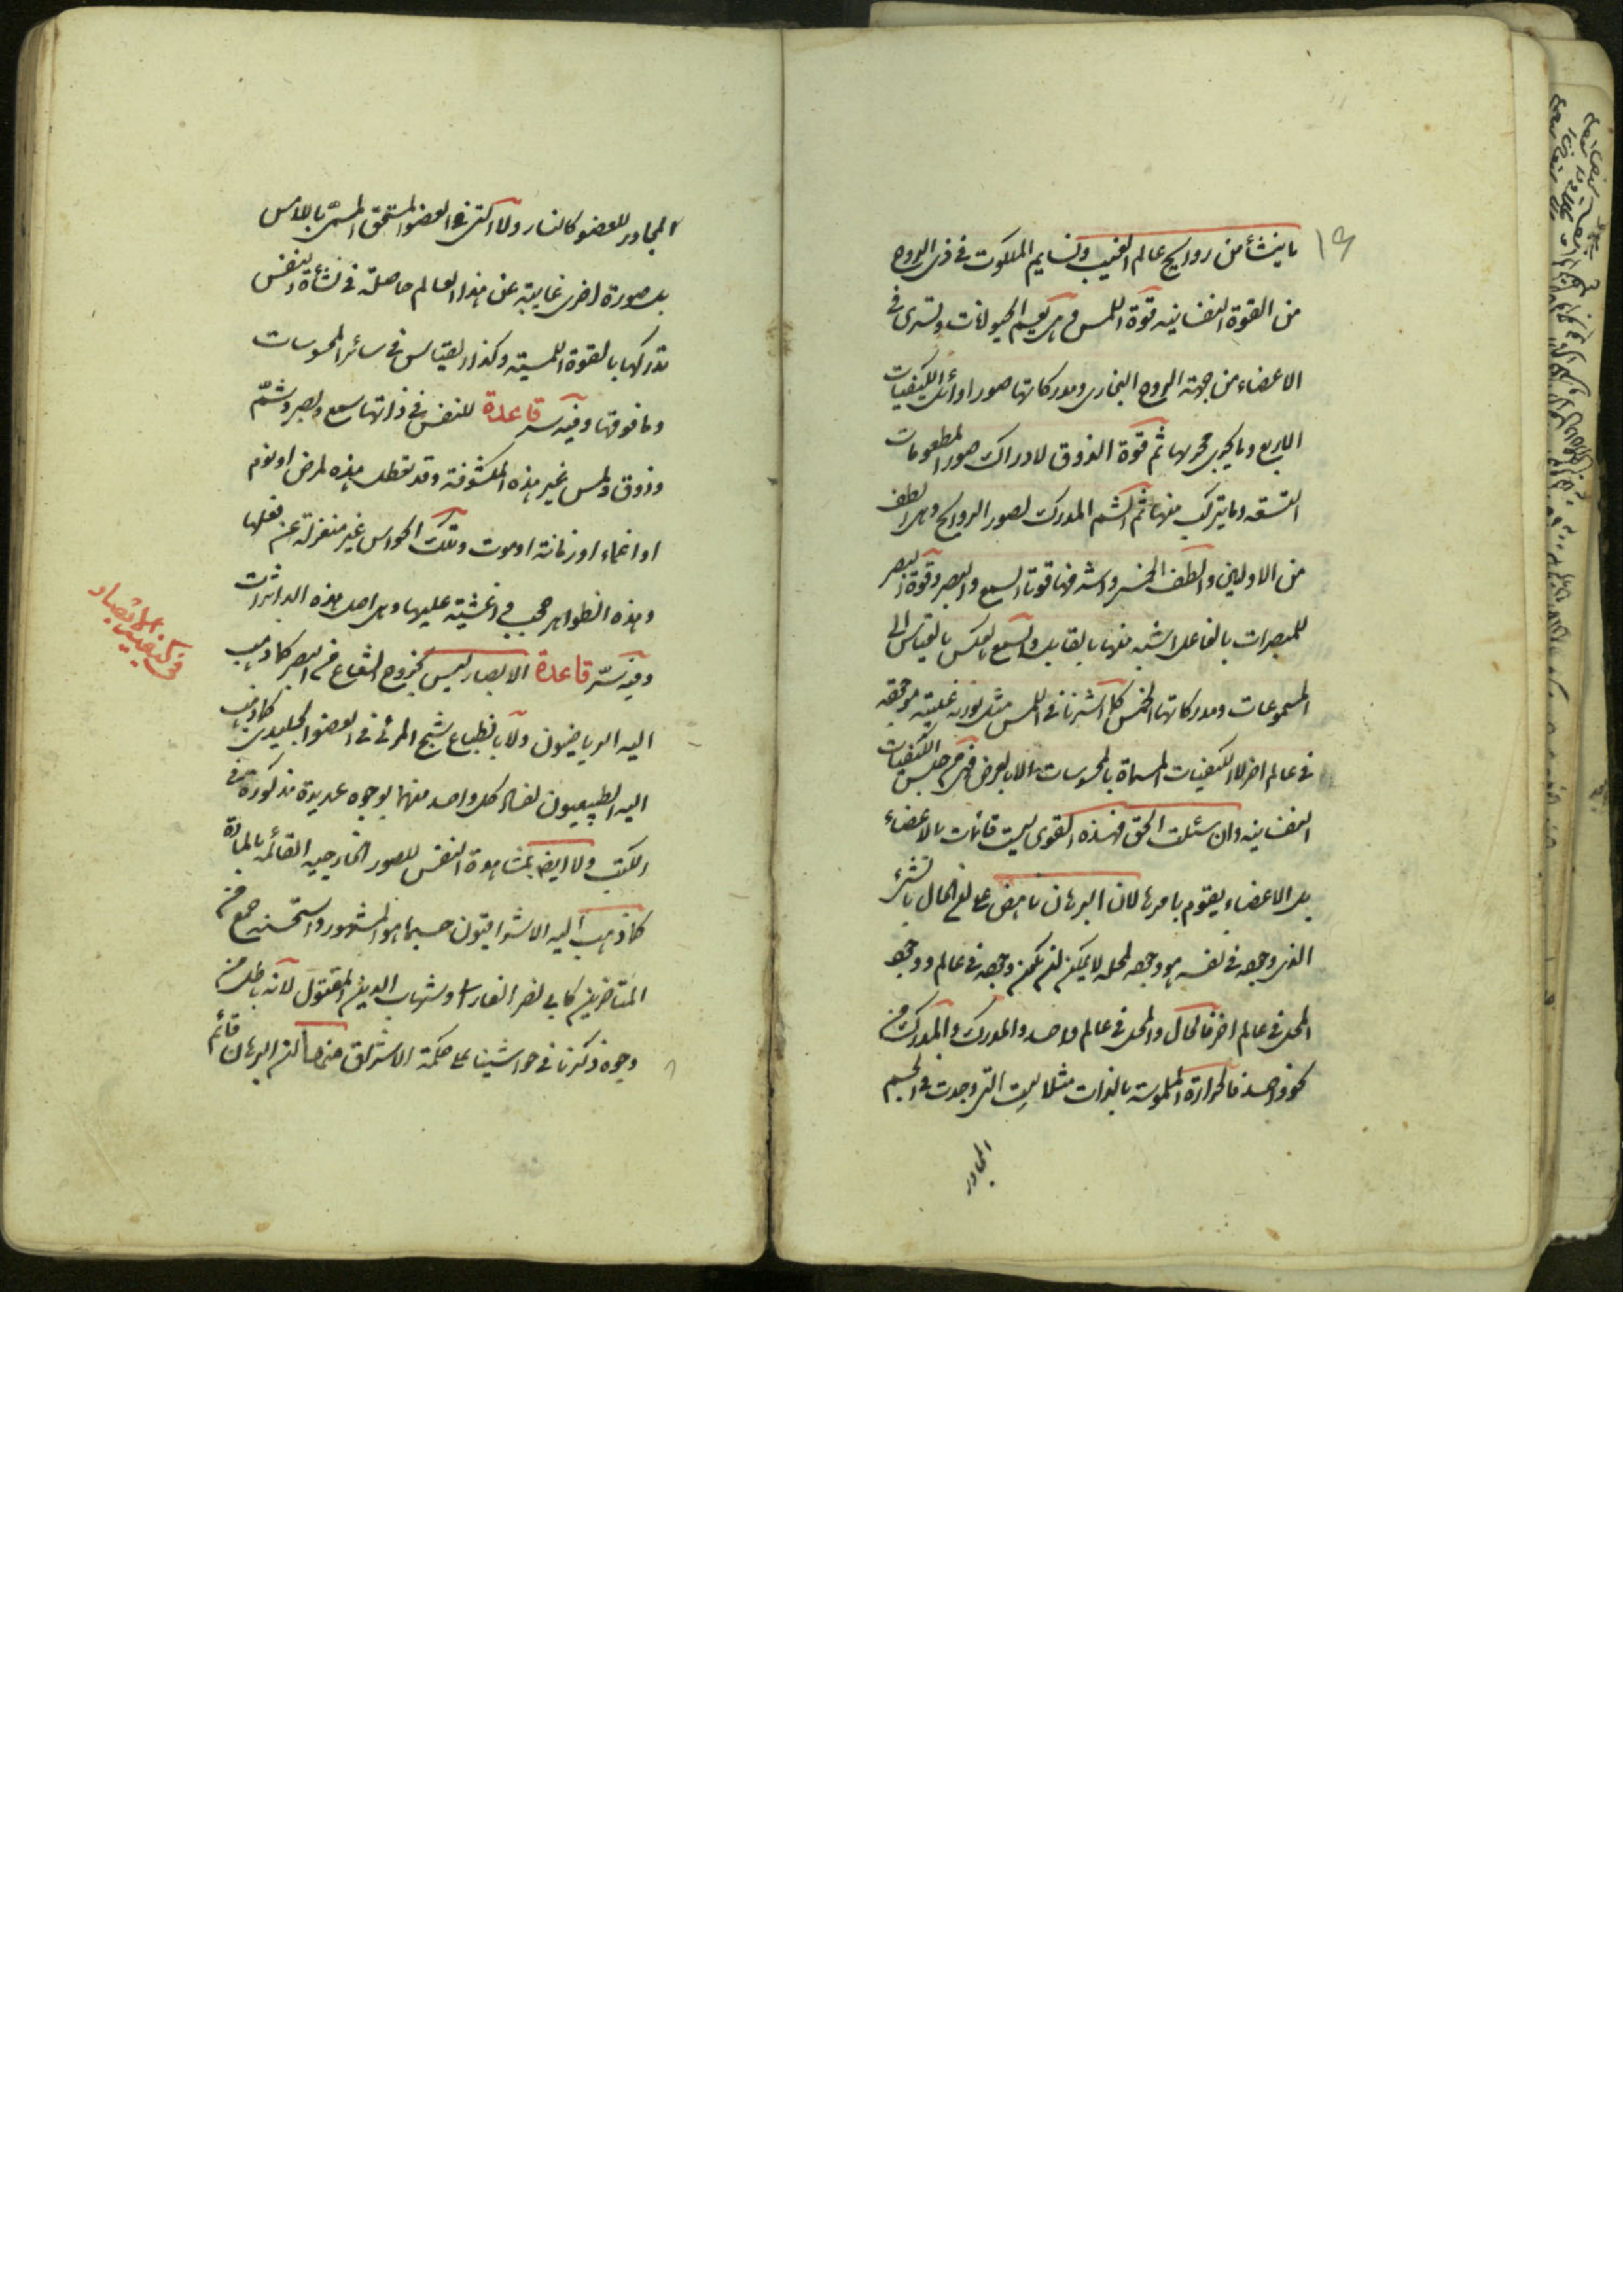 ١٩
ما ينشأ من روايح عالم الغيب ونسايم الملكوت في ذى الروح
من القوة النفسانيه قوة اللمس وهى تعم الحيوانات وتسرى فى
الاعضاء من جهة الروح البخارى ومدركاتها صور اوائل الكيفيات
الاربع وما يجرى مجريها ثم قوة الذوق لادراك صور المطعومات
التسعه وما يتركب منها ثم الشم المدرك لصور الروايح وهى الطف
من الاوليين والطف الخمس واشرفها قوتا السمع والبصر وقوة البصر
للمبصرات بالفاعل اشبه منها بالقابل والسمع بالعكس بالقياس الى
المسموعات ومدركاتها الخمس كلما اشرنا فى اللمس مثل نورية غيبية موجوده
فى عالم اخر لا الكيفيات المسماة بالمحسوسات الا بالعرض فهى من جنس الكيفيات
النفسانيه وان سئلت الحق فهذه القوى ليست قائمات بالاعضاء
بل الاعضاء يقوم بامرها لان البرهان ناهض على ان الحال بالشىء
الذى وجوده فى نفسه هو وجوده لمحله لا يمكن ان يكون وجوده فى عالم ووجود
المحل فى عالم اخر فالحال والمحل فى عالم واحد والمدرك والمدرك من
نحو واحد فالحرارة الملموسة بالذات مثلا ليست التى وجدت فى الجسم
المجاور
المجاور للعضو كالنار ولا التى فى العضو المتسخن المسمى باللامس
بل صورة اخرى غايبة عن هذا العالم حاصلة فى نشأة النفس
تدركها بالقوة اللمسية وكذا القياس فى سائر المحسوسات
وما فوقها وفيه سر قاعدة للنفس فى ذاتها سمع وبصر وشمّ
وذوق ولمس غير هذه المكشوفة وقد تعطل هذه لمرض او نوم
او اغماء او زمانة او موت وتلك الحواس غير منعزلة عن فعلها
وهذه الظواهر حجب واغشية عليها وهى اصل هذه الداثرات
وفيه سرّ قاعدة الابصار ليس بخروج الشعاع من البصر كما ذهب
فى كيفية الابصار
اليه الرياضيون ولا بانطباع شبح المرئى فى العضو الجليدى كما ذهب
اليه الطبيعيون لفساد كل واحد منهما بوجوه عديدة مذكورة فى
الكتب ولا ايضا بمشاهدة النفس للصور الخارجيه القائمه بالمادة
كما ذهب اليه الاشراقيون حسبما هو المشهور واستحسنه جمع من
المتاخرين كابى نصر الفارابى وشهاب الدين المقتول لانه باطل من
وجوه ذكرنا فى حواشينا على حكمة الاشراق منها ان البرهان قائم